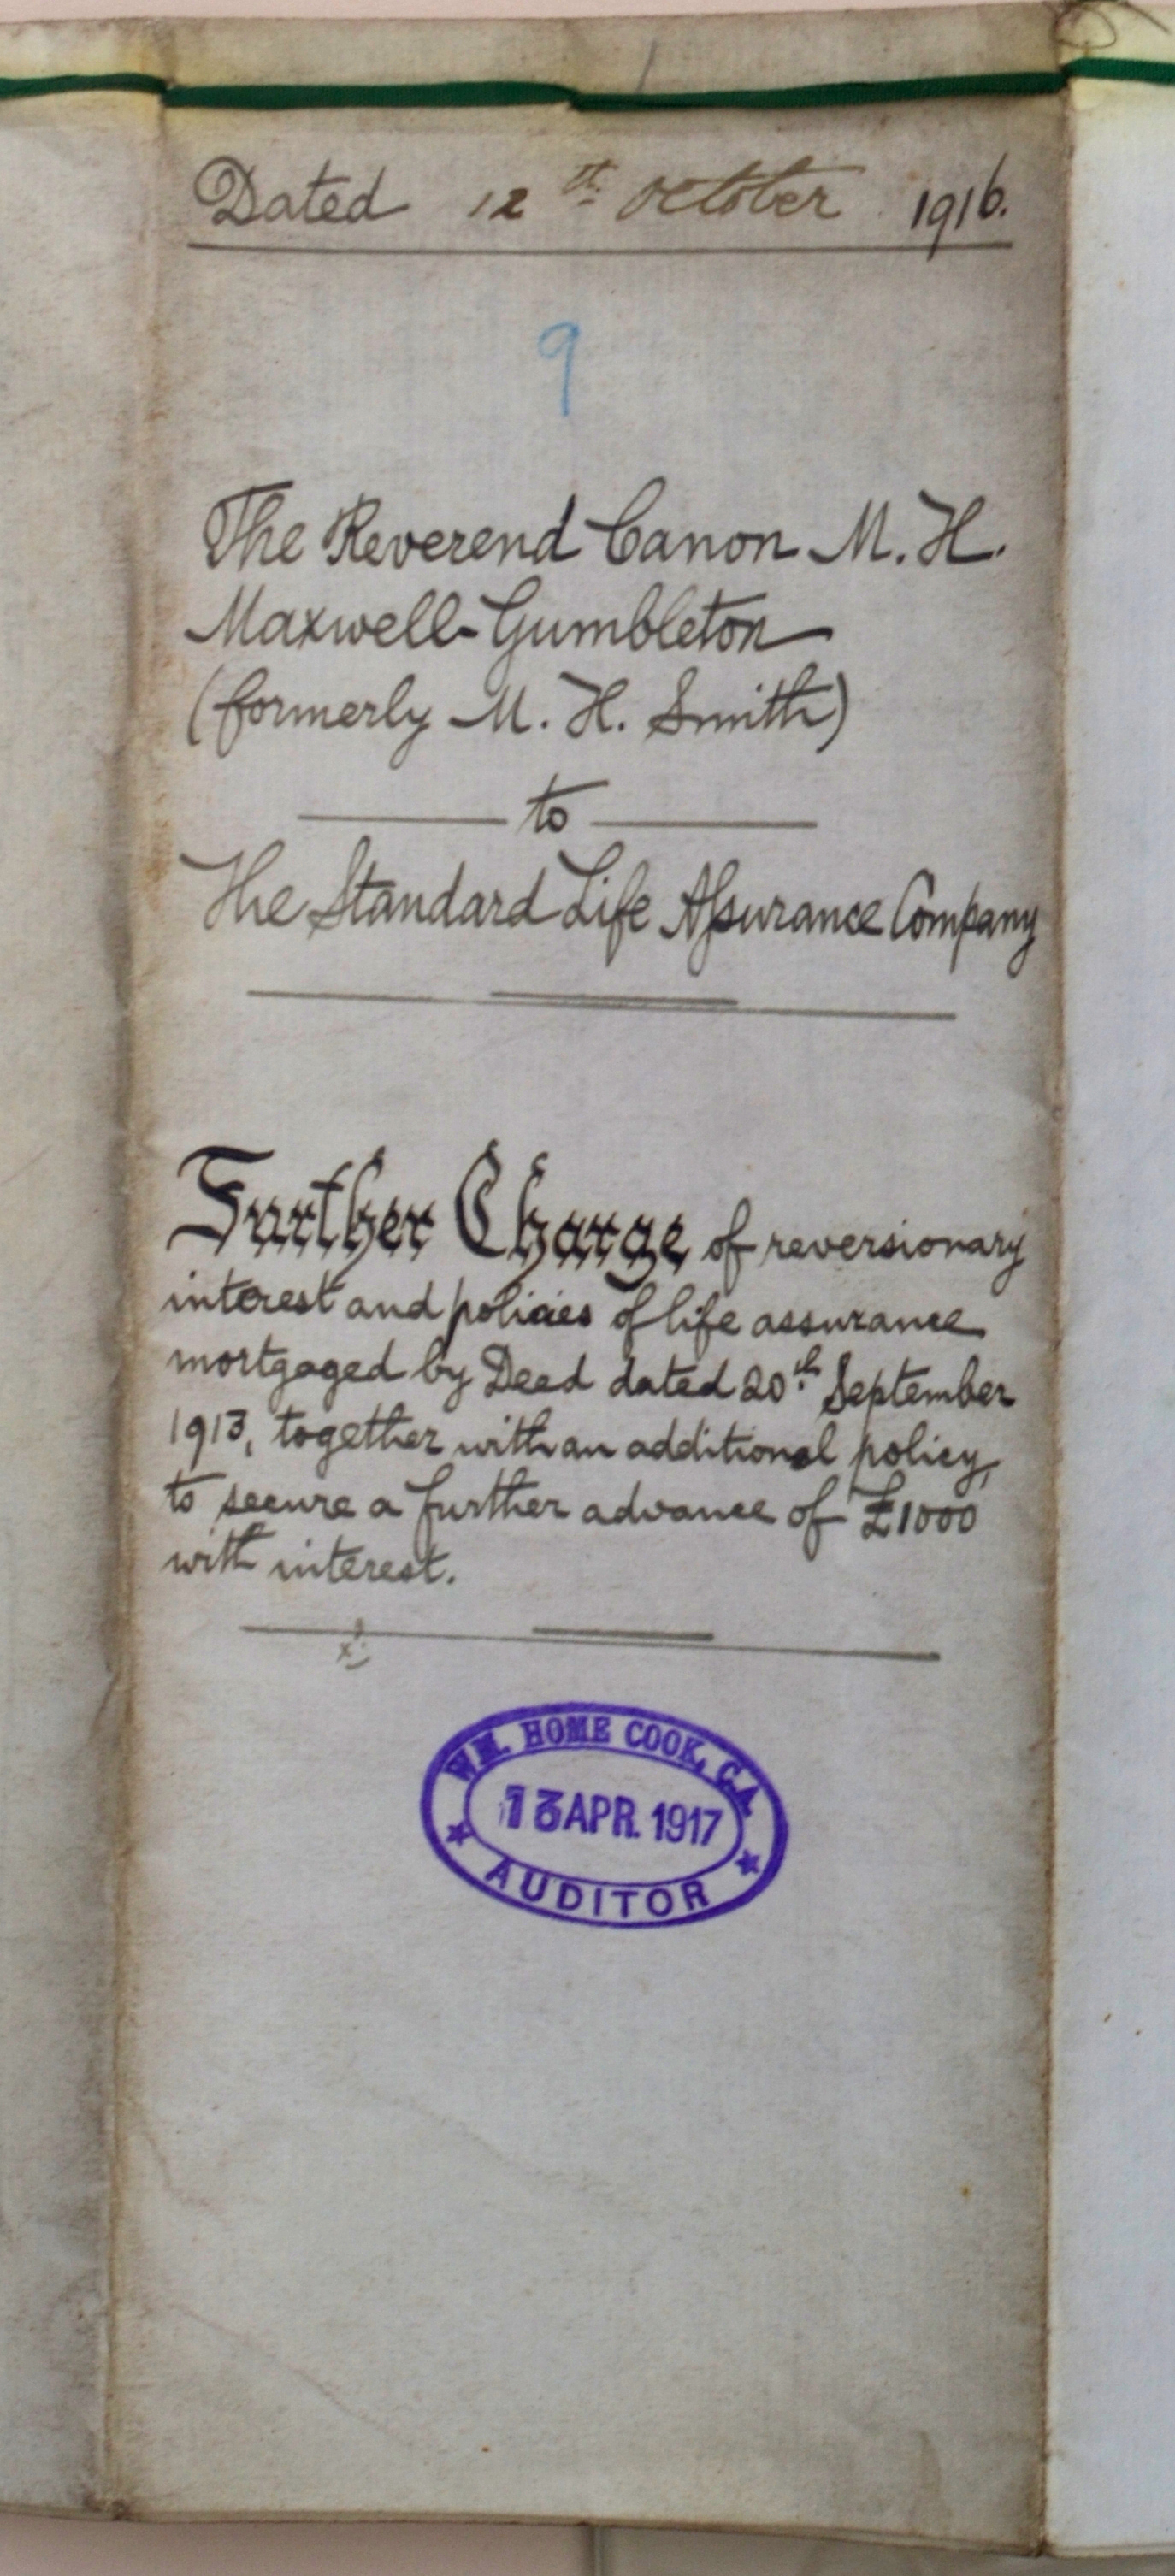 Dated 12th October 1916.
9
The Reverend Canon M. H.
Maxwell-Gumbleton
(formerly M. H. Smith)
to
The Standard Life Assurance Company
Further Charge of reversionary
interest and policies of life assurance
mortgaged by Deed dated 20th September
1913, together with an additional policy,
to secure a further advance of £1000
with interest.
WM. HOME COOK, C.A.
13 APR. 1917
AUDITOR